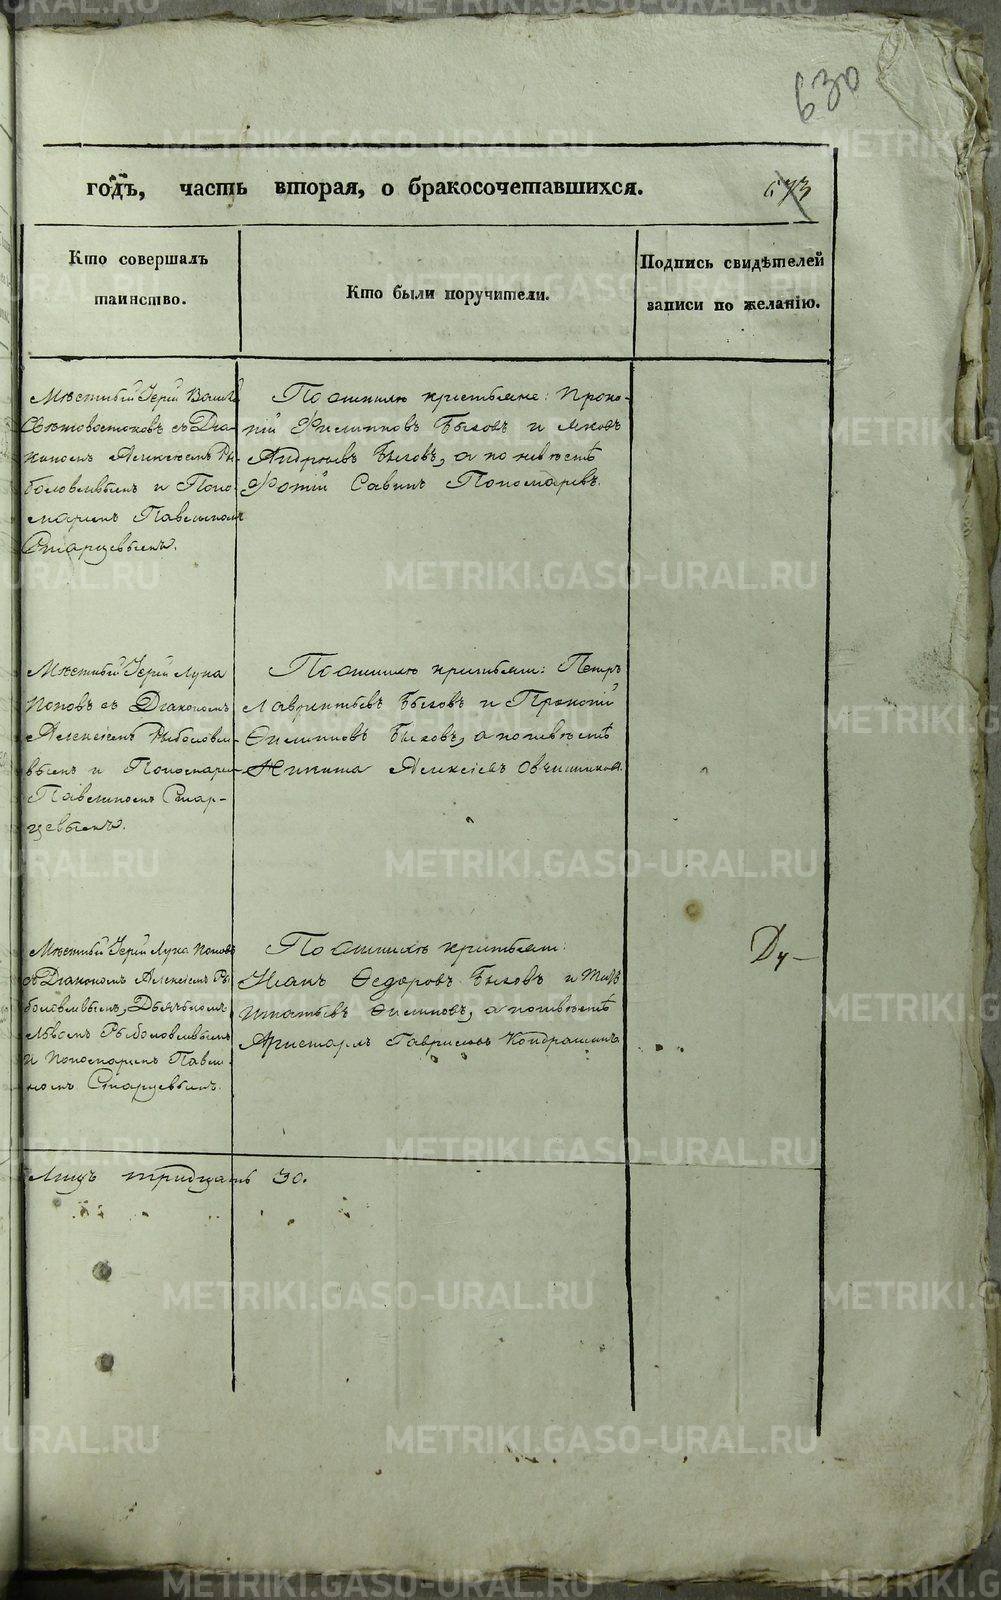 630
годъ, часть вторая, о бракосочетавшихся.
673
Кто совершалъ
таинство.
Кто были поручители.
Подпись свидѣтелей
записи по желанію.
Мѣстный Іерей
Свѣтовостоковъ съ Діа-
кономъ Алексѣемъ Ры-
боловлевымъ и Поно-
маремъ Павлиномъ
Старцевымъ.
По женихѣ крестьяне: Проко-
пій Филиповъ Быковъ и Яковъ
Андреевъ Быковъ, а по невѣстѣ
Фотій Савинъ Пономаревъ.
Мѣстный Іерей Лука
Поповъ съ Діакономъ
Алексіемъ Рыболовле-
вымъ и Пономаремъ
Павлиномъ Стар-
цевымъ.
По женихѣ крестьяне: Петръ
Лаврентьевъ Быковъ и Прокопій
Ѳилиповъ Быковъ, а по невѣстѣ
Никита Алексіевъ Овчинников
Мѣстный Іерей Лука Поповъ
съ Діакономъ Алексіемъ Ры-
боловлевымъ, Дьячкомъ
Львомъ Рыболовлевымъ
и Пономаремъ Павли-
номъ Старцевымъ.
По женихѣ крестьяне:
Иванъ Ѳедоровъ Быковъ и
Игнатьевъ Ѳилиповъ, а по невѣстѣ
Аристархъ Гавриловъ Кондрашинъ
Ду-
Лицъ тридцать 30.
METRIKI.GASO-URAL.RU